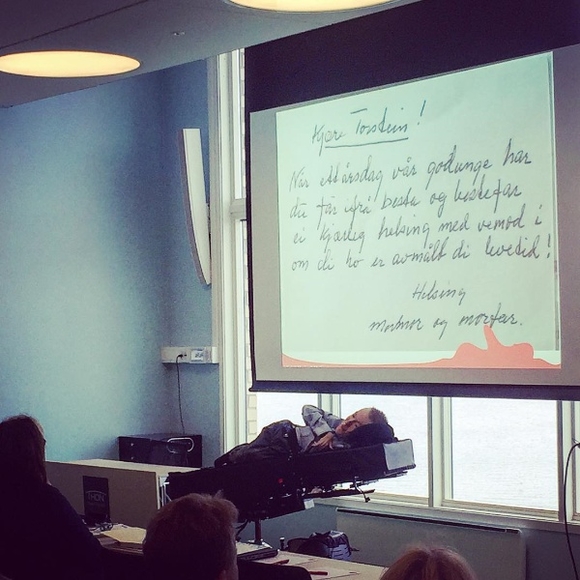 Kjære Torstein!
Når ettårsdag vår godunge har
du får ifrå beste og bestefar
ei kjærleg helsing med vemod i
om di ho er avmålt di levetid!
Helsing
mormor og morfar.
THON